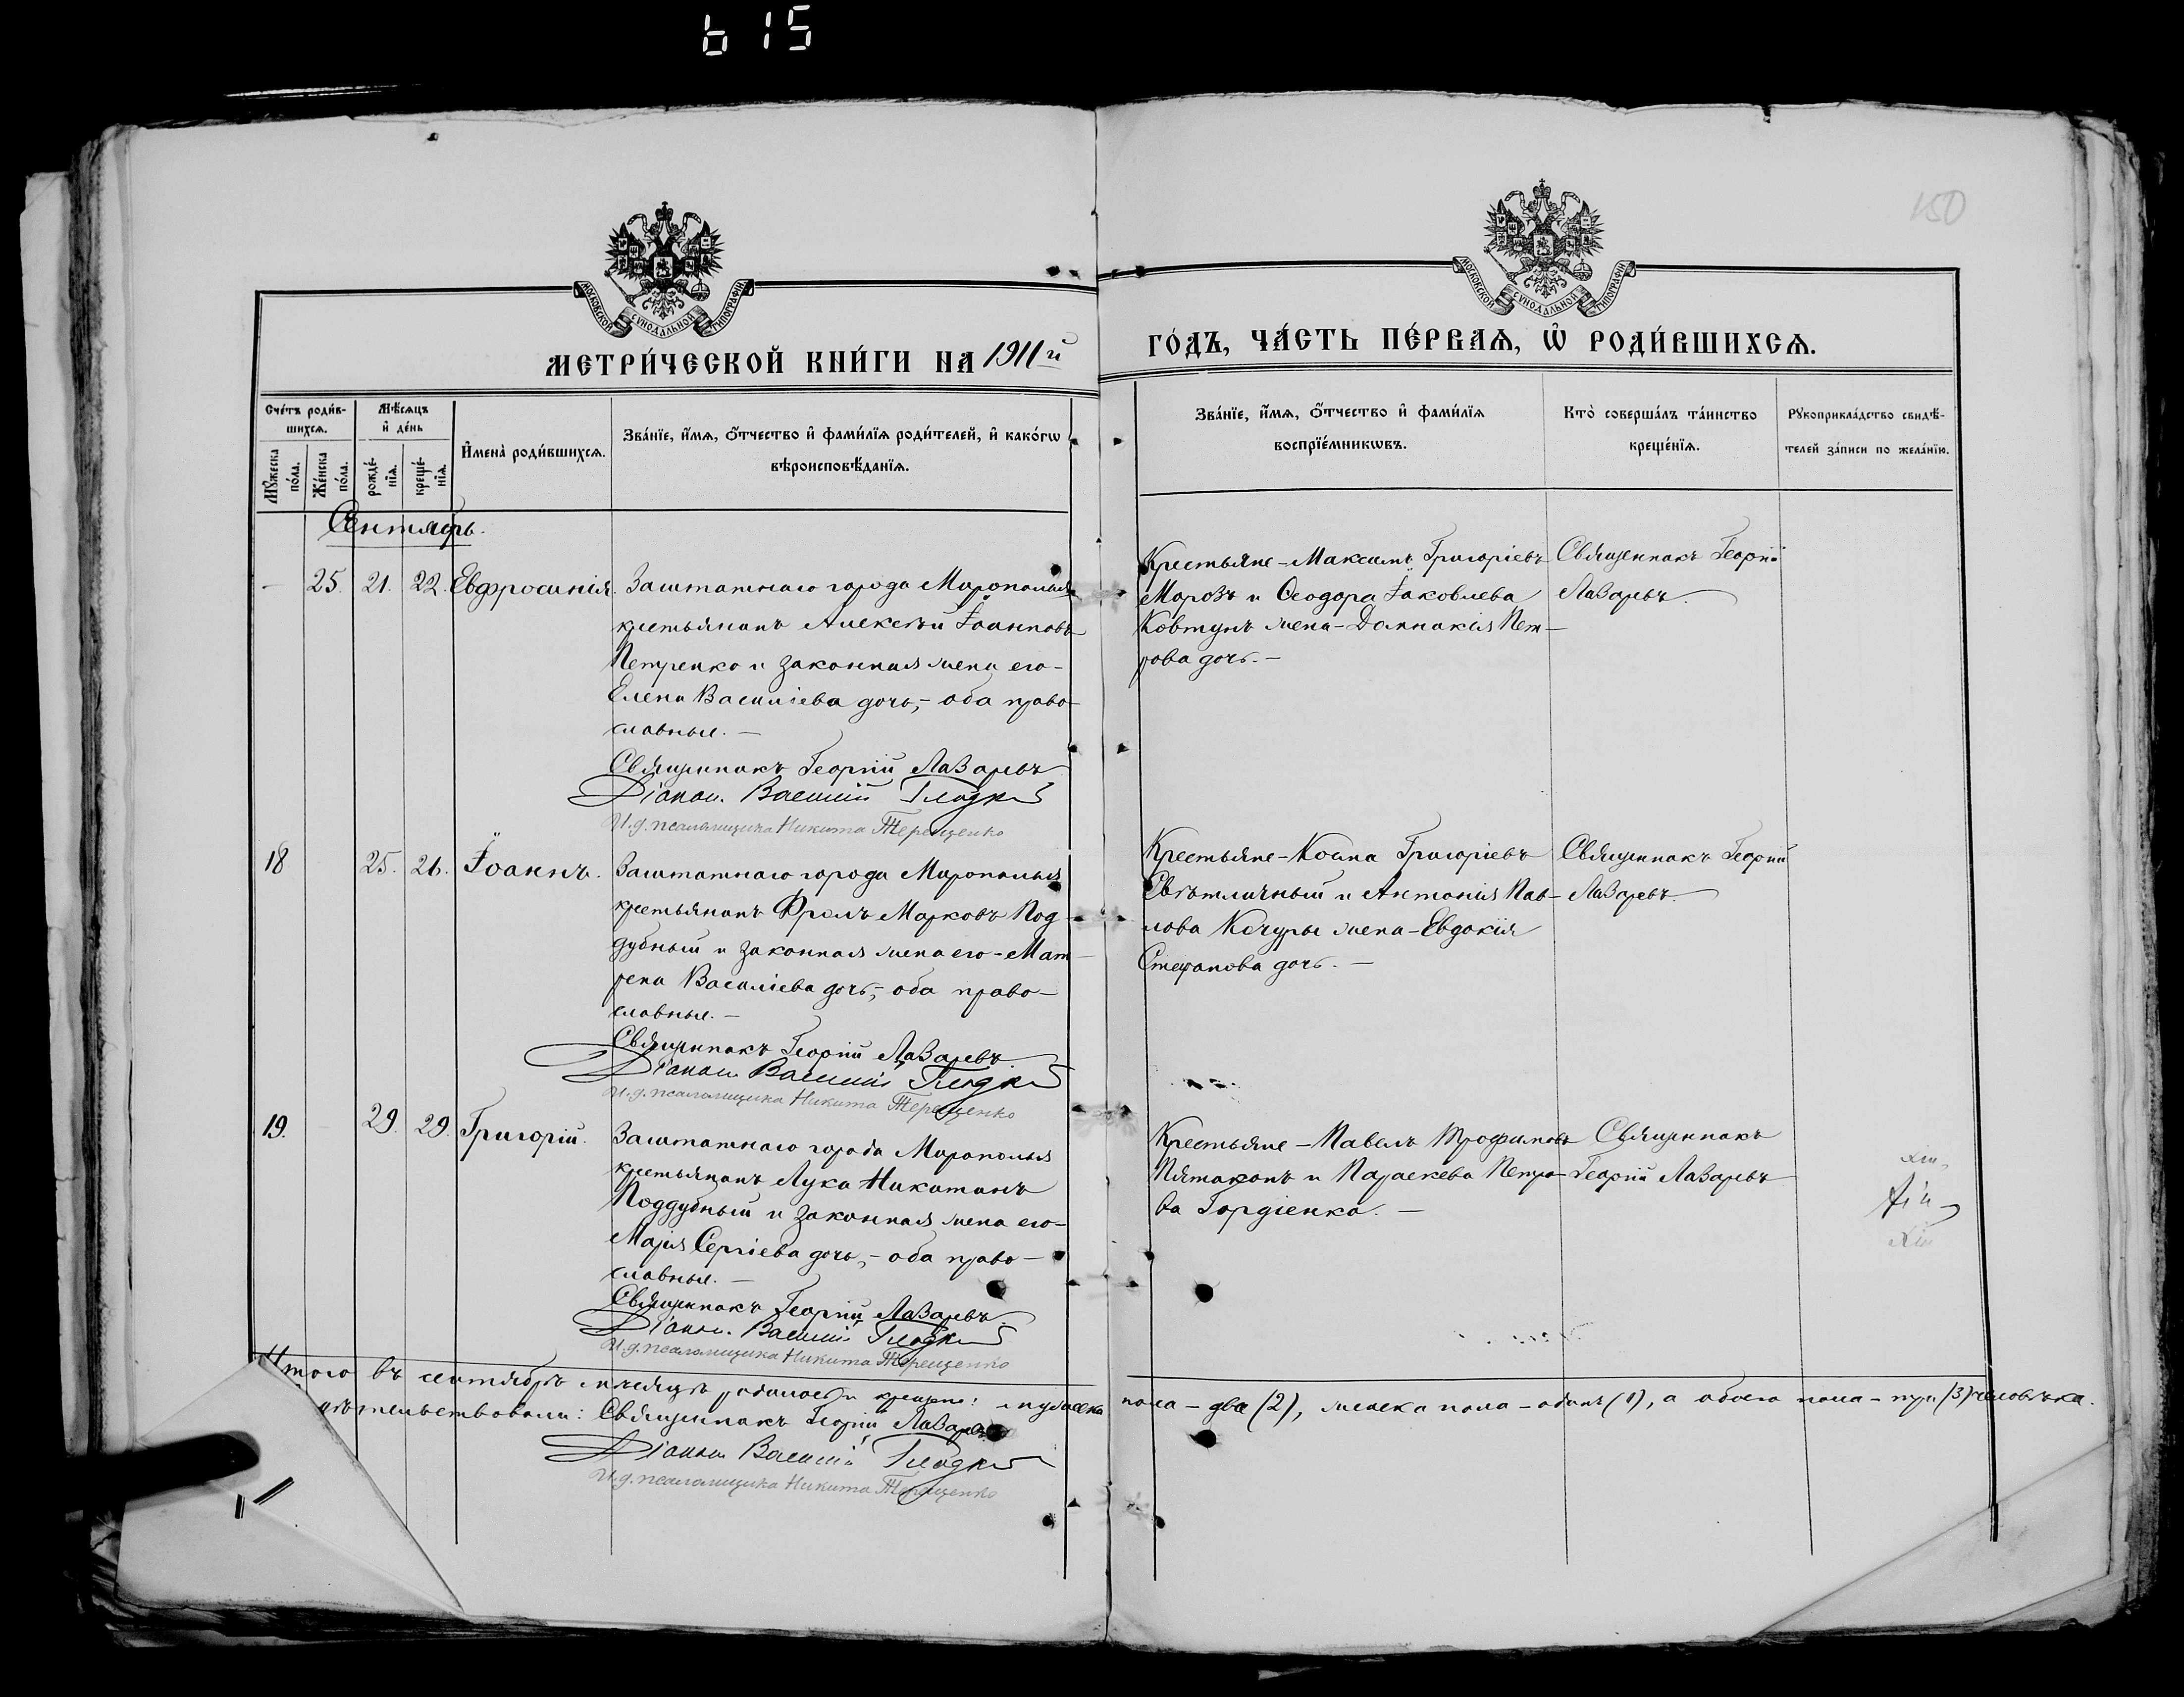 615
150
МОСКОВСКОЙ СѴНОДАЛЬНОЙ ТИПОГРАФІИ
МОСКОВСКОЙ СѴНОДАЛЬНОЙ ТИПОГРАФІИ
МЕТРИ́ЧЕСКОЙ КНИ́ГИ НА 1911й
ГО́ДЪ, ЧА́СТЬ ПЕ́РВАѦ, Ѡ҆ РОДИ́ВШИХСѦ.
Сче́тъ роди́в-
шихсѧ.
Мѣ́сѧцъ
и҆ де́нь
Мꙋ́жеска
по́ла.
Же́нска
по́ла.
рожде́-
нїѧ.
креще́-
нїѧ.
И҆мена̀ роди́вшихсѧ.
Зва́нїе, и҆́мѧ, ѻ҆́тчество и҆ фами́лїѧ роди́телей, и҆ како́гѡ
вѣроисповѣ́данїѧ.
Зва́нїе, и҆́мѧ, ѻ҆́тчество и҆ фами́лїѧ
воспрїе́мникѡвъ.
Кто̀ соверша́лъ та́инство
креще́нїѧ.
Рꙋкоприкла́дство свидѣ́-
телей за́писи по жела́нїю.
Сентябрь.
— 25. 21. 22. Евфросинія.
Заштатнаго города Мирополья
крестьянинъ Алексѣй Іоанновъ
Петренко и законная жена его-
Елена Василіева дочь,- оба право-
славные. —
Священникъ Георгій Лазаревъ
Діаконъ Василій Гладкій
И.д. псаломщика Никита Терещенко
Крестьяне - Максимъ Григоріевъ
Морозъ и Ѳеодора Іаковлева
Ковтунъ жена - Домникія Пет-
рова дочь. —
Священникъ Георгій
Лазаревъ.
18 25. 26. Іоаннъ.
Заштатнаго города Мирополья
крестьянинъ Фролъ Марковъ Под-
дубный и законная жена его - Мат-
рена Василіева дочь,- оба право-
славные. —
Священникъ Георгій Лазаревъ
Діаконъ Василій Гладкій
И.д. псаломщика Никита Терещенко
Крестьяне - Косма Григоріевъ
Свѣтличный и Антонія Пав-
лова Кочуры жена - Евдокія
Стефанова дочь. —
Священникъ Георгій
Лазаревъ.
19. 29. 29. Григорій.
Заштатнаго города Мирополья
крестьянинъ Лука Никитинъ
Поддубный и законная жена его-
Марія Сергіева дочь,- оба право-
славные. —
Священникъ Георгій Лазаревъ.
Діаконъ Василій Гладкій
И.д. псаломщика Никита Терещенко
Крестьяне - Павелъ Трофимовъ
Пятаконъ и Параскева Петро-
ва Гордіенко. —
Священникъ
Георгій Лазаревъ
Итого въ сентябрѣ мѣсяцѣ родилось и крещено: мужеска пола - два (2), женска пола - одинъ (1), а обоего пола - три (3) человѣка.
Священникъ Георгій Лазаревъ
Діаконъ Василій Гладкій
И.д. псаломщика Никита Терещенко